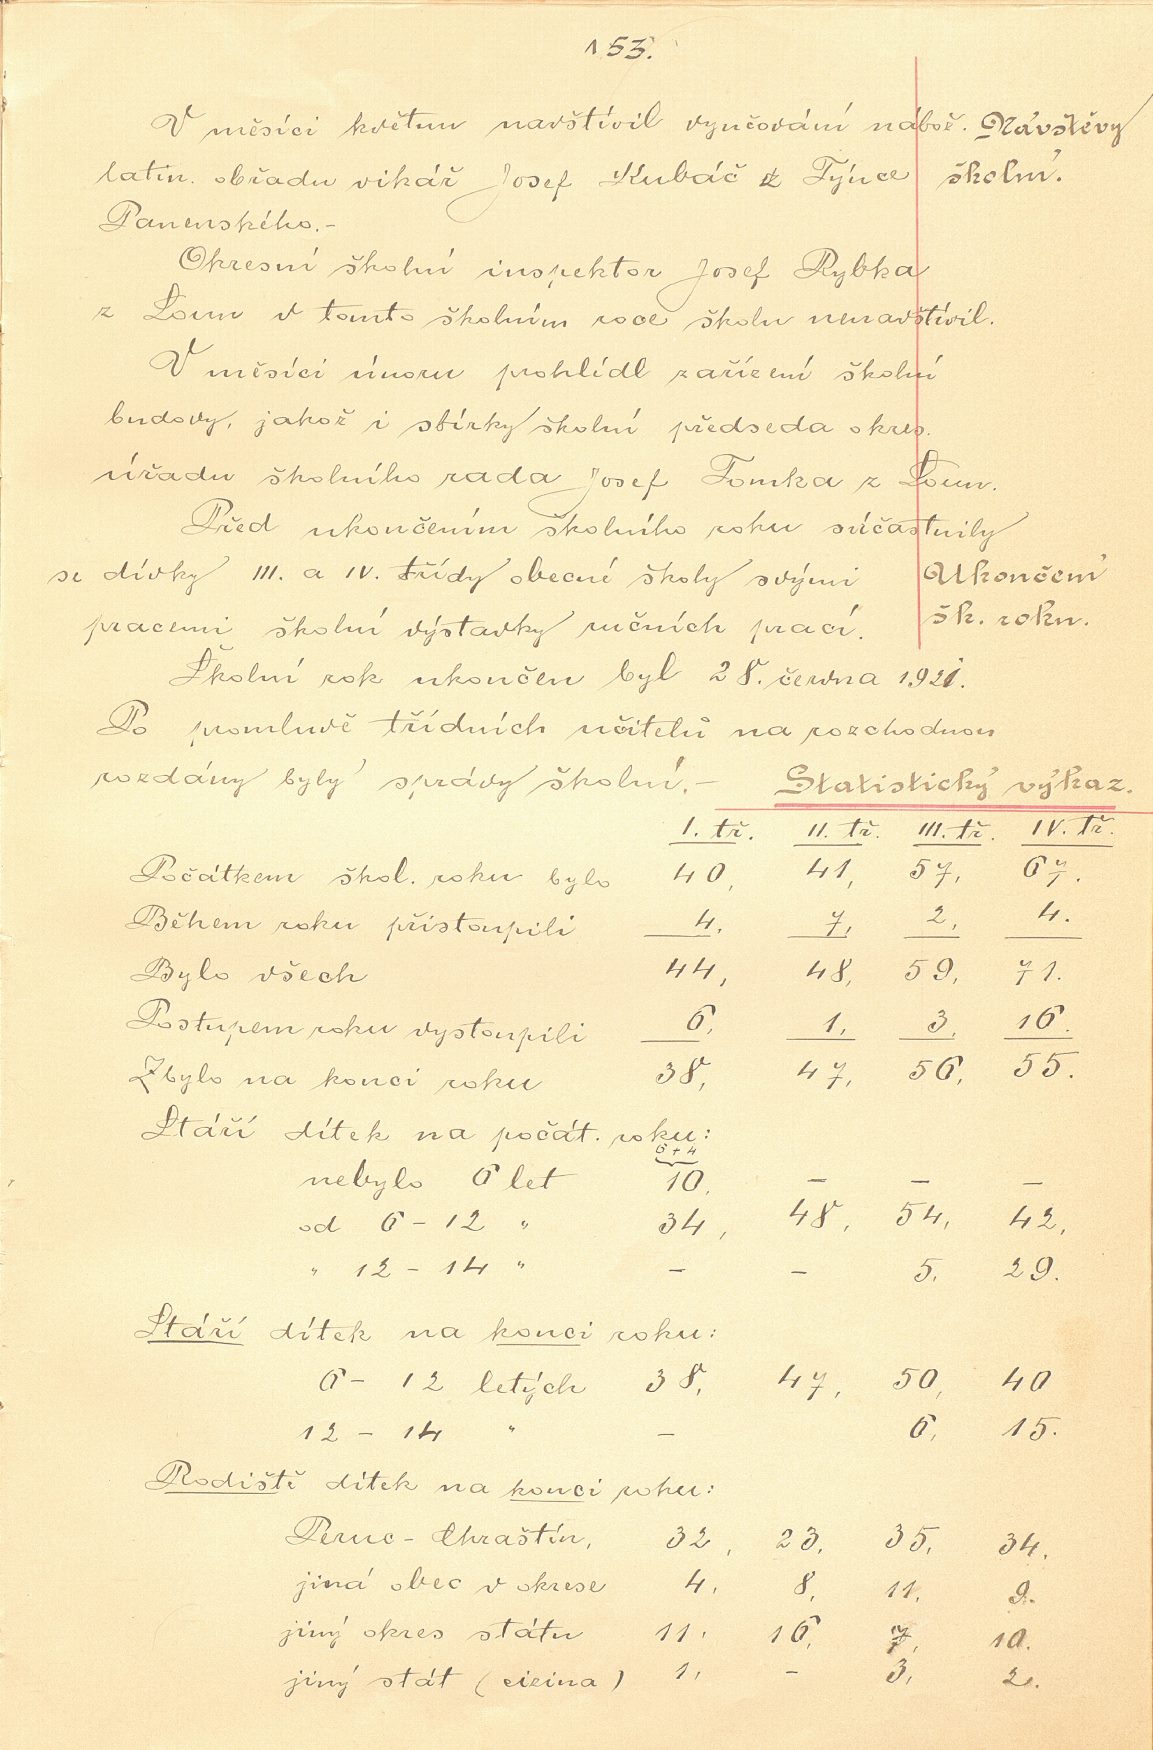 153.
V měsíci květnu navštívil vyučování nábož. Návštěvy
latin. obřadu vikář Josef Kubáč z Týnce školní.
Panenského.-
Okresní školní inspektor Josef Rybka
z Loun v tomto školním roce školu nenavštívil.
V měsíci únoru prohlídl zařízení školní
budovy, jakož i sbírky školní předseda okres.
úřadu školního rada Josef Tomka z Loun.
Před ukončením školního roku súčastnily
se dívky III. a IV. třídy obecné školy svými Ukončení
pracemi školní výstavky ručních prací. šk. roku.
Školní rok ukončen byl 28. června 1921.
Po promluvě třídních učitelů na rozchodnou
rozdány byly správy školní.- Statistický výkaz.
I. tř. II. tř. III. tř. IV. tř.
Počátkem škol. roku bylo 40, 41, 57, 67.
Během roku přistoupili 4, 7, 2, 4.
Bylo všech 44, 48, 59, 71.
Postupem roku vystoupili 6, 1, 3, 16.
Zbylo na konci roku 38, 47, 56, 55.
Stáří dítek na počát. roku:
6+4
nebylo 6 let 10, – – –
od 6 – 12 " 34, 48, 54, 42,
" 12 – 14 " – – 5, 29.
Stáří dítek na konci roku:
6 – 12 letých 38, 47, 50, 40
12 – 14 " – 6, 15.
Rodiště dítek na konci roku:
Peruc – Chraštín, 32, 23, 35, 34.
jiná obec v okrese 4, 8, 11, 9.
jiný okres státu 11, 16, 7, 10.
jiný stát (cizina) 1, – 3, 2.